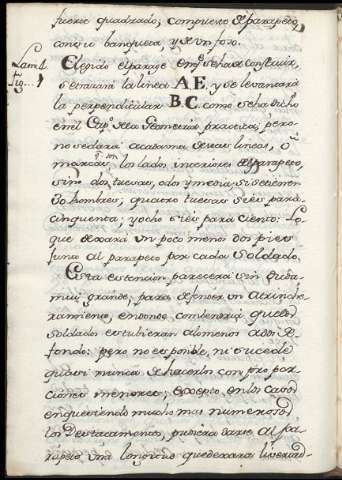 fuerte quadrado, compuesto de parapeto,
con su banqueta, y de un foso.
Lam. 1
fig... 1
Elegido el parage en q.e se ha de construir,
se tirará la linea A E, y se levantará
la perpendicular B C como se ha dicho
en el Cap.o de la Geometria practica; pero
no se dará a cada una de estas lineas, q.e
marcan los lados interiores del parapeto,
sino dos tuesas, o dos y media si se tienen
hombres; quatro tuesas si es para
cinquenta; y ocho si es para ciento: Lo
que dexará un poco menos dos pies
junto al parapeto por cada Soldado.
Esta extencion parecerá sin duda
mui grande, para defender un atrinche-
ramiento, en donde combendria que los
soldados estubieran alomenos a dos de
fondo: pero no es posible, ni sucede
quasi nunca de hacerlos con proporciones
menores; excepto en los casos
en que siendo mucho mas numerosos
los Destacamentos, pudiera darse al pa-
rapeto una longitud que dexara libertad